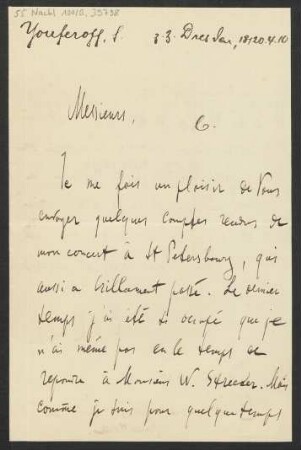 55 Nachl 100/B, 39798
Youferoff, S.
z. Z. Dresden, 18/20.4.10
Messieurs,
6.
Je me fais un plaisir de Vous
envoyer quelques comptes rendus de
mon concert à St Petersbourg, qui
aussi a brillament passé. Le dernier
temps j'ai été si occupé que je
n'ai même pas eu le temps de
repondre à Monsieur W. Streeder. Mais
comme je suis pour quelque temps